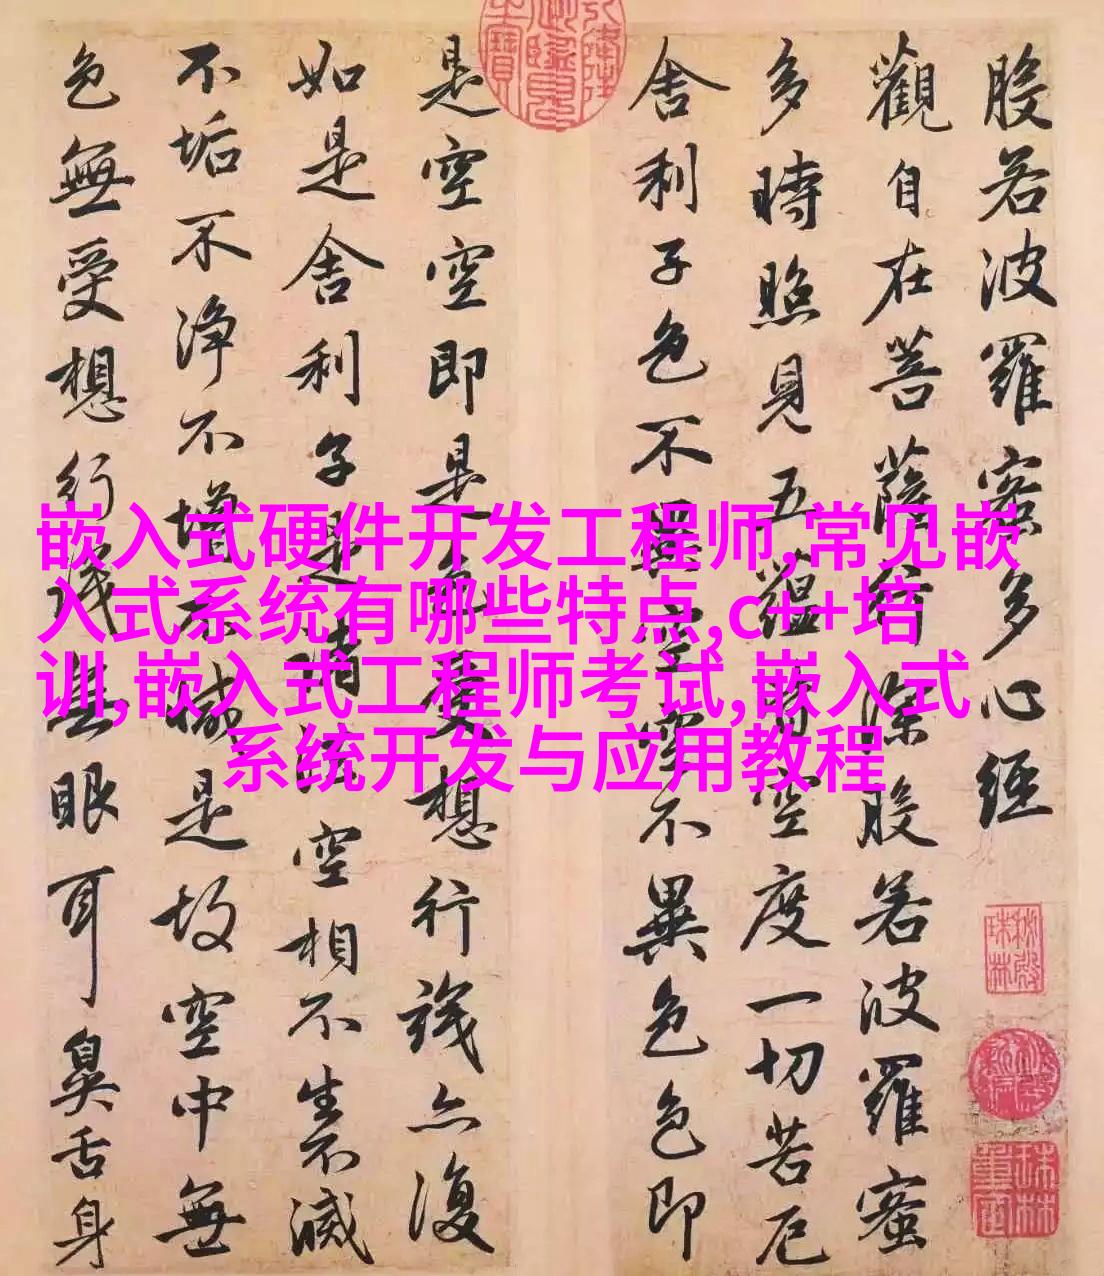 般若波羅蜜多心經
觀自在菩薩行深般若波羅蜜
多時照見五蘊皆空度一切苦厄
舍利子色不異空空不異色色即
是空空即是色受想行識亦復
如是舍利子是諸法空相不生不滅
不垢不淨不增不減是故空中無
色無受想行識無眼耳鼻舌身
嵌入式硬件开发工程师,常见嵌
入式系统有哪些特点,c++培
训,嵌入式工程师考试,嵌入式
系统开发与应用教程